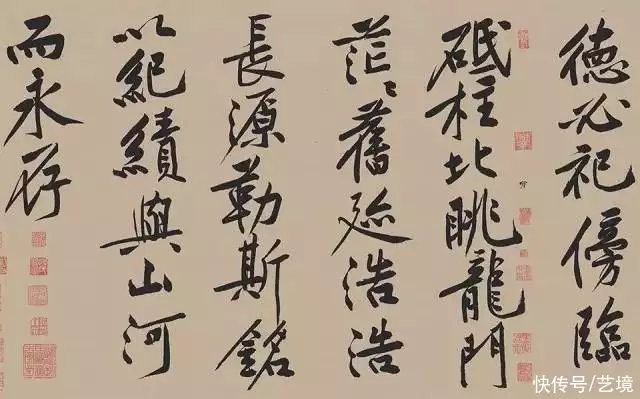 德必祀傍臨
砥柱北眺龍門
茫〻舊迹浩浩
長源勒斯銘
以紀績與山河
而永存
快传号/艺境